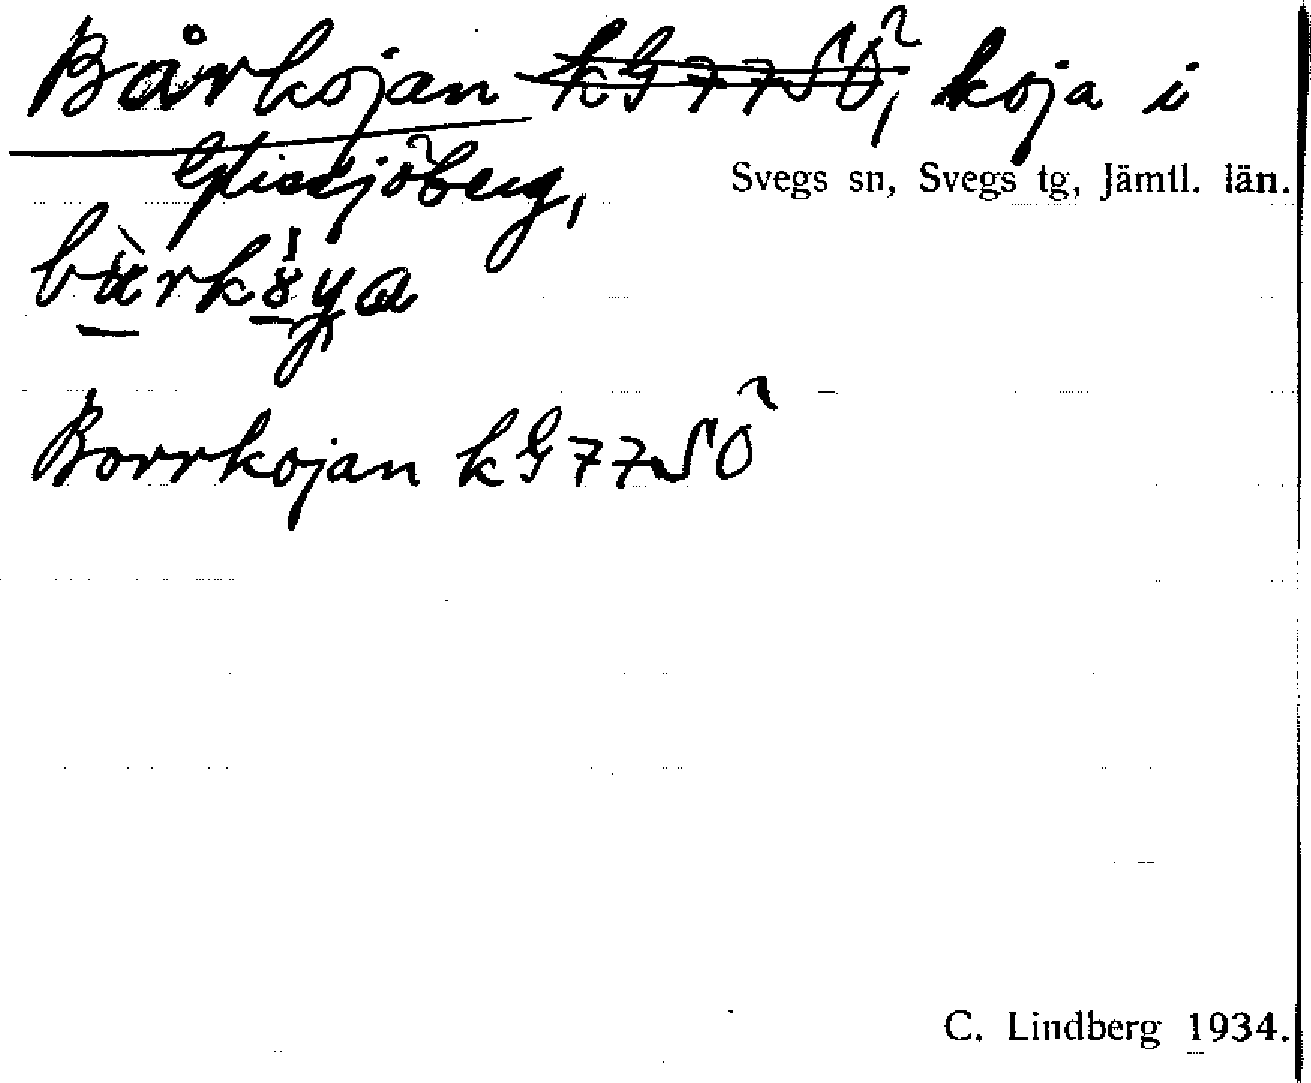 Bårkojan kG77SÖ, koja i
Glissjöberg,
Svegs sn, Svegs tg, Jämtl. län.
Borrkojan kG77SÖ
C. Lindberg 1934.